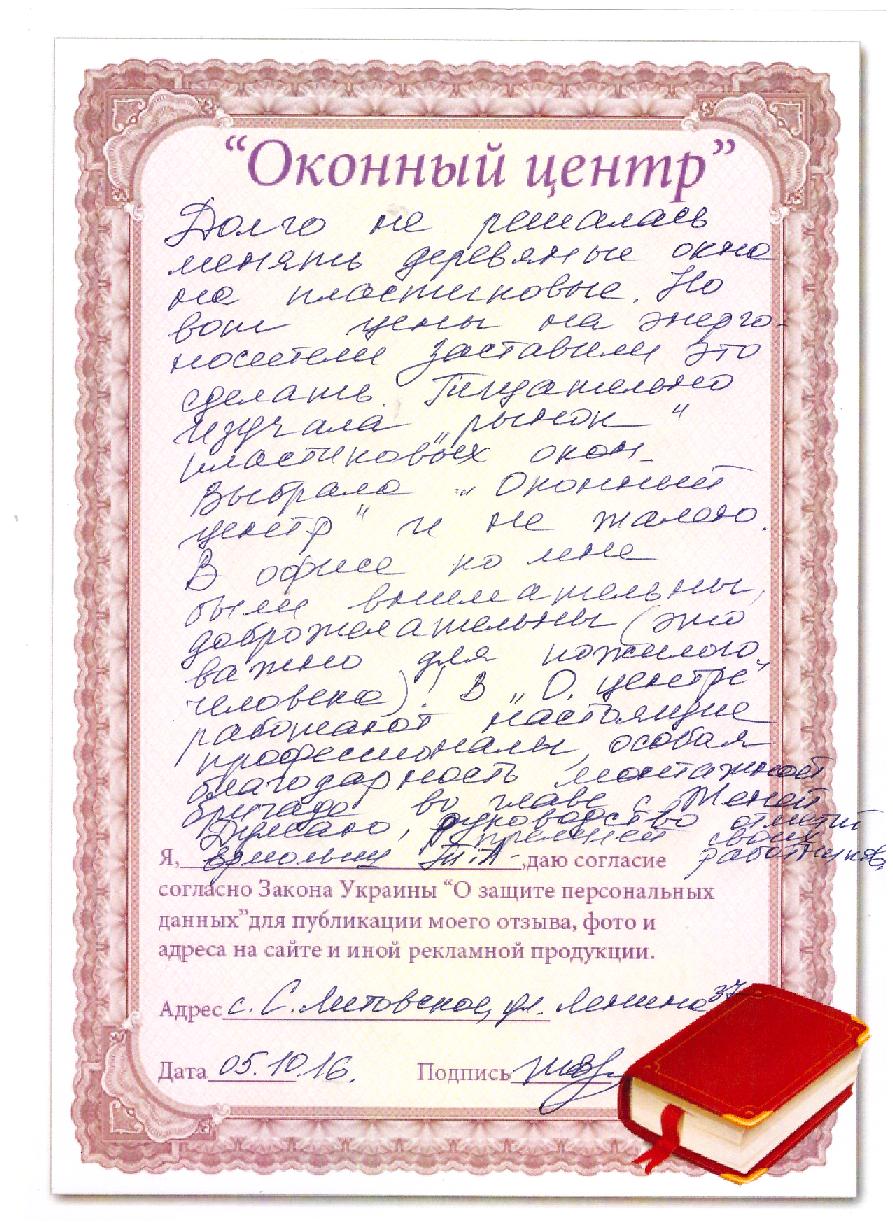 “Оконный центр”
Долго не решалась
менять деревяные окна
на пластиковые. Но
вот цены на энерго-
носители заставили это
сделать. Тщательно
изучала „рынок“
пластиковых окон.
Выбрала „Оконный
центр“ и не жалею.
В офисе ко мне
были внимательны,
доброжелательны (это
важно для пожилого
человека)! В „О. центре“
работают настоящие
профессионалы, особая
благодарность монтажной
бригаде во главе с Женей
Думаю, руководство отметит
своих
работников
Я, ,даю согласие
согласно Закона Украины “О защите персональных
данных”для публикации моего отзыва, фото и
адреса на сайте и иной рекламной продукции.
Адрес с. С. Литовское, ул. Ленина 37
Дата 05.10.16. Подпись